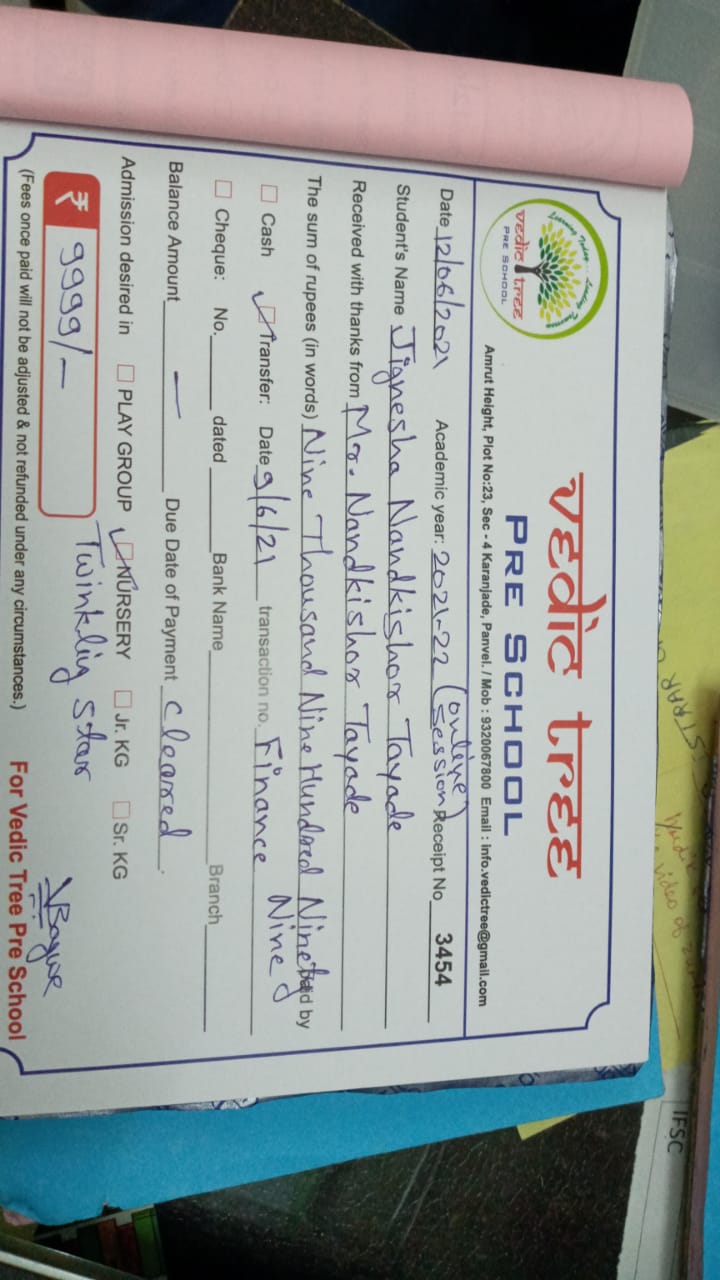 Learning Today... Leading Tomorrow
vedic tree
PRE SCHOOL
vedic tree
PRE SCHOOL
Amrut Height, Plot No:23, Sec - 4 Karanjade, Panvel. / Mob : 9320067800 Email : info.vedictree@gmail.com
Date 12/06/2021 Academic year: 2021-22 (online session) Receipt No 3454
Student's Name Jignesha Nandkishor Tayade
Received with thanks from Mr. Nandkishor Tayade
The sum of rupees (in words) Nine Thousand Nine Hundred Ninety Nine Paid by
Cash Transfer: Date 9/6/21 transaction no. Finance
Cheque: No. dated Bank Name Branch
Balance Amount — Due Date of Payment Cleared.
Admission desired in PLAY GROUP NURSERY Jr. KG Sr. KG
₹ 9999/- Twinklig star
(Fees once paid will not be adjusted & not refunded under any circumstances.) For Vedic Tree Pre School
IFSC